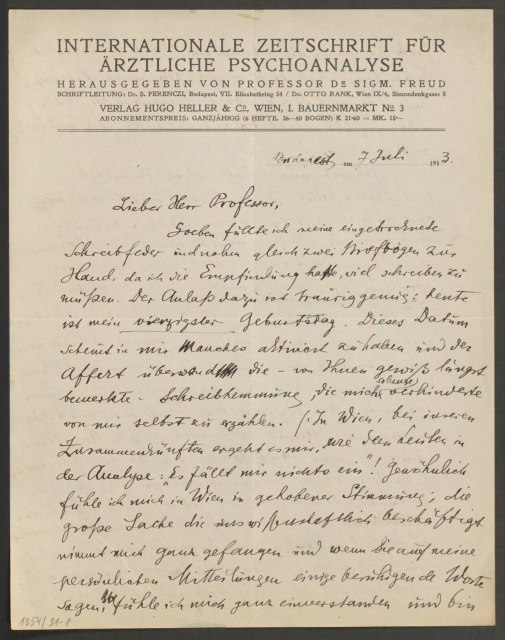 INTERNATIONALE ZEITSCHRIFT FÜR
ÄRZTLICHE PSYCHOANALYSE
HERAUSGEGEBEN VON PROFESSOR DR SIGM. FREUD
SCHRIFTLEITUNG: Dr. S. FERENCZI, Budapest, VII. Elisabethring 54 / Dr. OTTO RANK, Wien IX/4, Simondenkgasse 8
VERLAG HUGO HELLER & Co, WIEN, I. BAUERNMARKT No 3
ABONNEMENTSPREIS: GANZJÄHRIG (6 HEFTE, 36–40 BOGEN) K 21·60 = MK. 18·—
Budapest, am 7 Juli 1913.
Lieber Herr Professor,
Soeben füllte ich meine eingetrocknete
Schreibfeder und nahm gleich zwei Briefbögen zur
Hand, da ich die Empfindung hatte, viel schreiben zu
müßen. Der Anlaß dazu ist traurig genug: heute
ist mein vierzigster Geburtstag. Dieses Datum
scheint in mir Manches aktiviert zu haben und der
Affekt die – von Ihnen gewiß längst
bemerkte – Schreibhemmung, die mich verhinderte
von mir selbst zu erzählen. (In Wien, bei unseren
Zusammenkünften ergeht es mir, wie den Leuten in
der Analyse: "Es fällt mir nichts ein"! Gewöhnlich
fühle ich mich in Wien in gehobener Stimmung; die
große Sache die uns wissenschaftlich beschäftigt
nimmt mich ganz gefangen und wenn Sie auf meine
persönlichen Mitteilungen einige beruhigende Worte
sagen, fühle ich mich ganz einverstanden und bin
1054/31-8